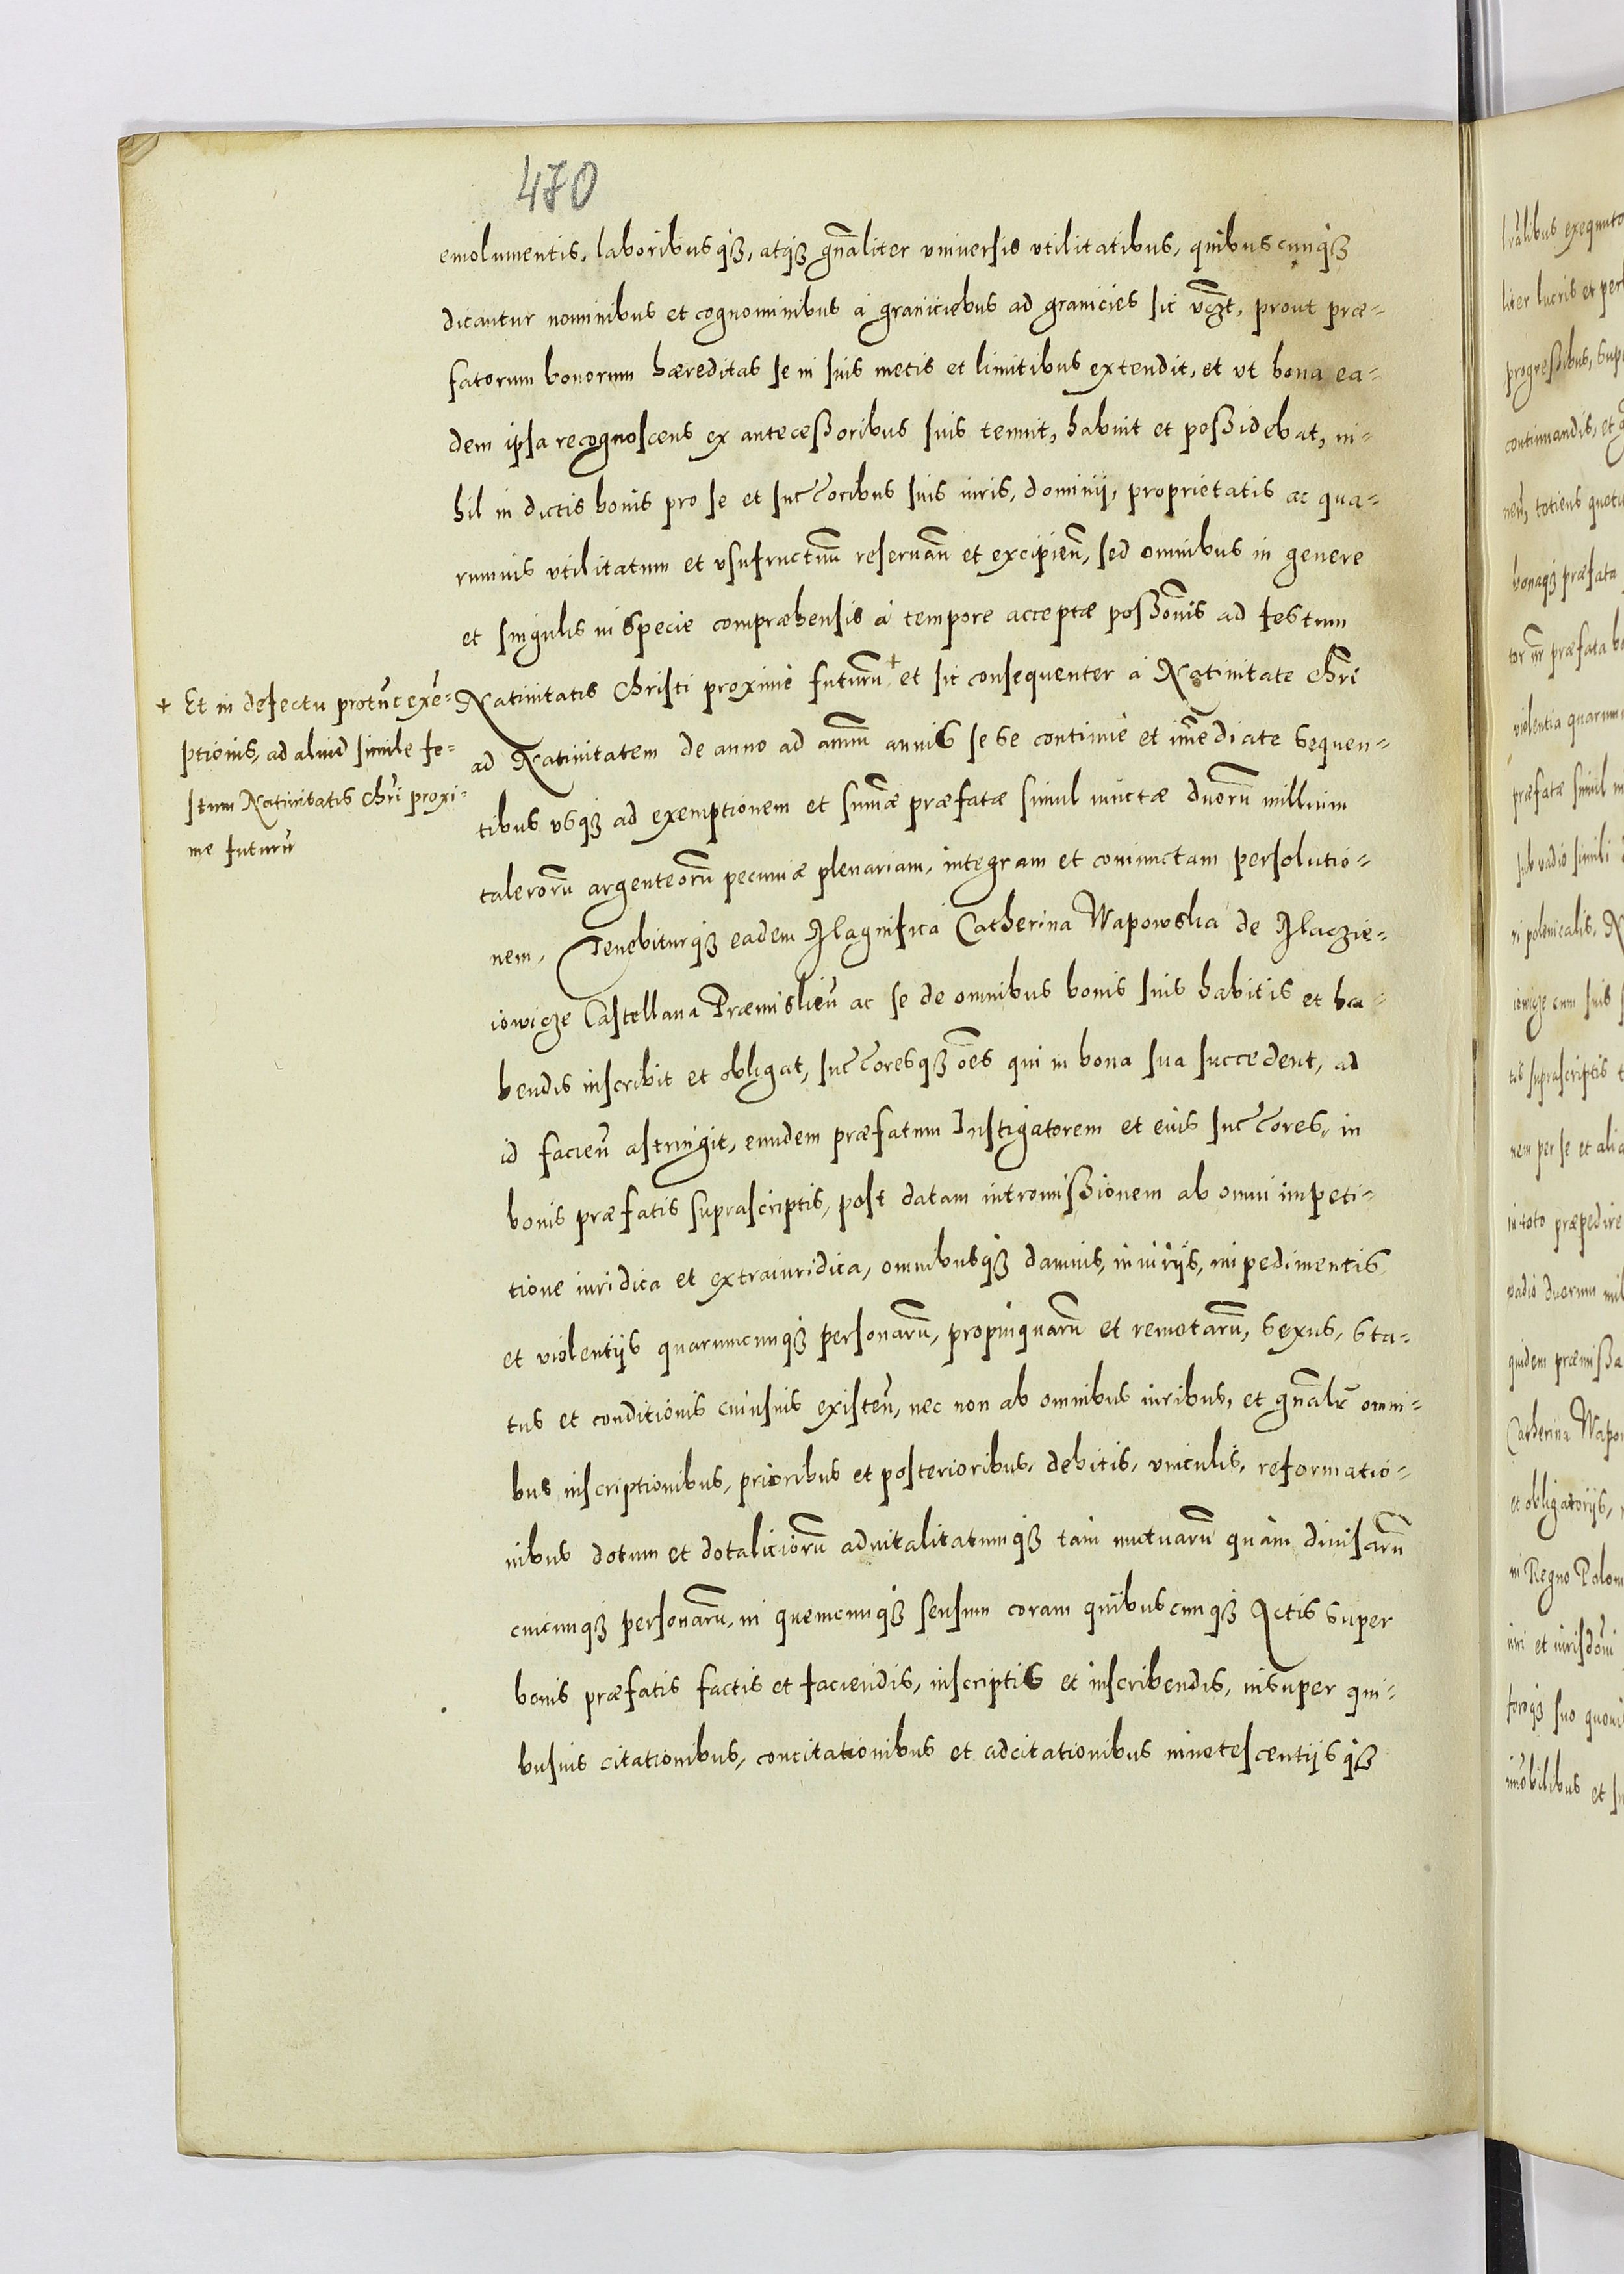 470
emolumentis, laboribusqꝫ, atqꝫ gnāliter vniversis vtilitatibus, quibuscunqꝫ
dicantur nominibus et cognominibus à graniciebus ad granicies sic vczt, prout præ-
fatorum bonorum hæreditas se in suis metis et limitibus extendit, et vt bona ea-
dem ipsa recognoscens ex antecessoribus suis tenuit, habuit et possidebat, ni-
hil in dictis bonis pro se et succoribus suis iuris, dominij, proprietatis ac qua-
rumuis vtilitatum et vsufructuū reseruan̄ et excipien̄, sed omnibus in genere
et singulis in specie compræhensis à tempore acceptæ possonīs ad festum
Natiuitatis Christi proximè futurū + et sic consequenter à Natiuitate Chrī
ad Natiuitatem de anno ad annū annis se se continuè et imediate sequen-
tibus vsqꝫ ad exemptionem et sumæ præfatæ simul iunctæ duorū millium
talerorū argenteorū pecuniæ plenariam, integram et coniunctam persolutio-
nem, Tenebiturqꝫ eadem Magnifica Catherina Wapowska de Maczie-
iowicze Castellana Præmislien̄ ac se de omnibus bonis suis habitis et ha-
bendis inscribit et obligat, succoresqꝫ oēs qui in bona sua succedent, ad
id facien̄ astringit, eundem præfatum Instigatorem et eius succores, in
bonis præfatis suprascriptis, post datam intromissionem ab omni impeti-
tione iuridica et extraiuridica, omnibusqꝫ damnis, iniurijs, impedimentis
et violentijs quarumcunqꝫ personarū, propinquarū et remotarū, sexus, sta-
tus et conditionis cuiusuis existen̄, nec non ab omnibus iuribus, et gnālr omni-
bus inscriptionibus, prioribus et posterioribus, debitis, vinculis, reformatio-
nibus dotum et dotaliciorū aduitalitatumqꝫ tam mutuarū quàm diuisarū
cuicunqꝫ personarū, in quemcunqꝫ sensum coram quibuscunqꝫ Actis super
bonis præfatis factis et faciendis, inscriptis et inscribendis, insuper qui-
busuis citationibus, concitationibus et adcitationibus innotescentijsqꝫ
+ Et in defectu protūc exē-
ptionis, ad aliud simile fe-
stum Natiuitatis Chrī proxi-
me futurū